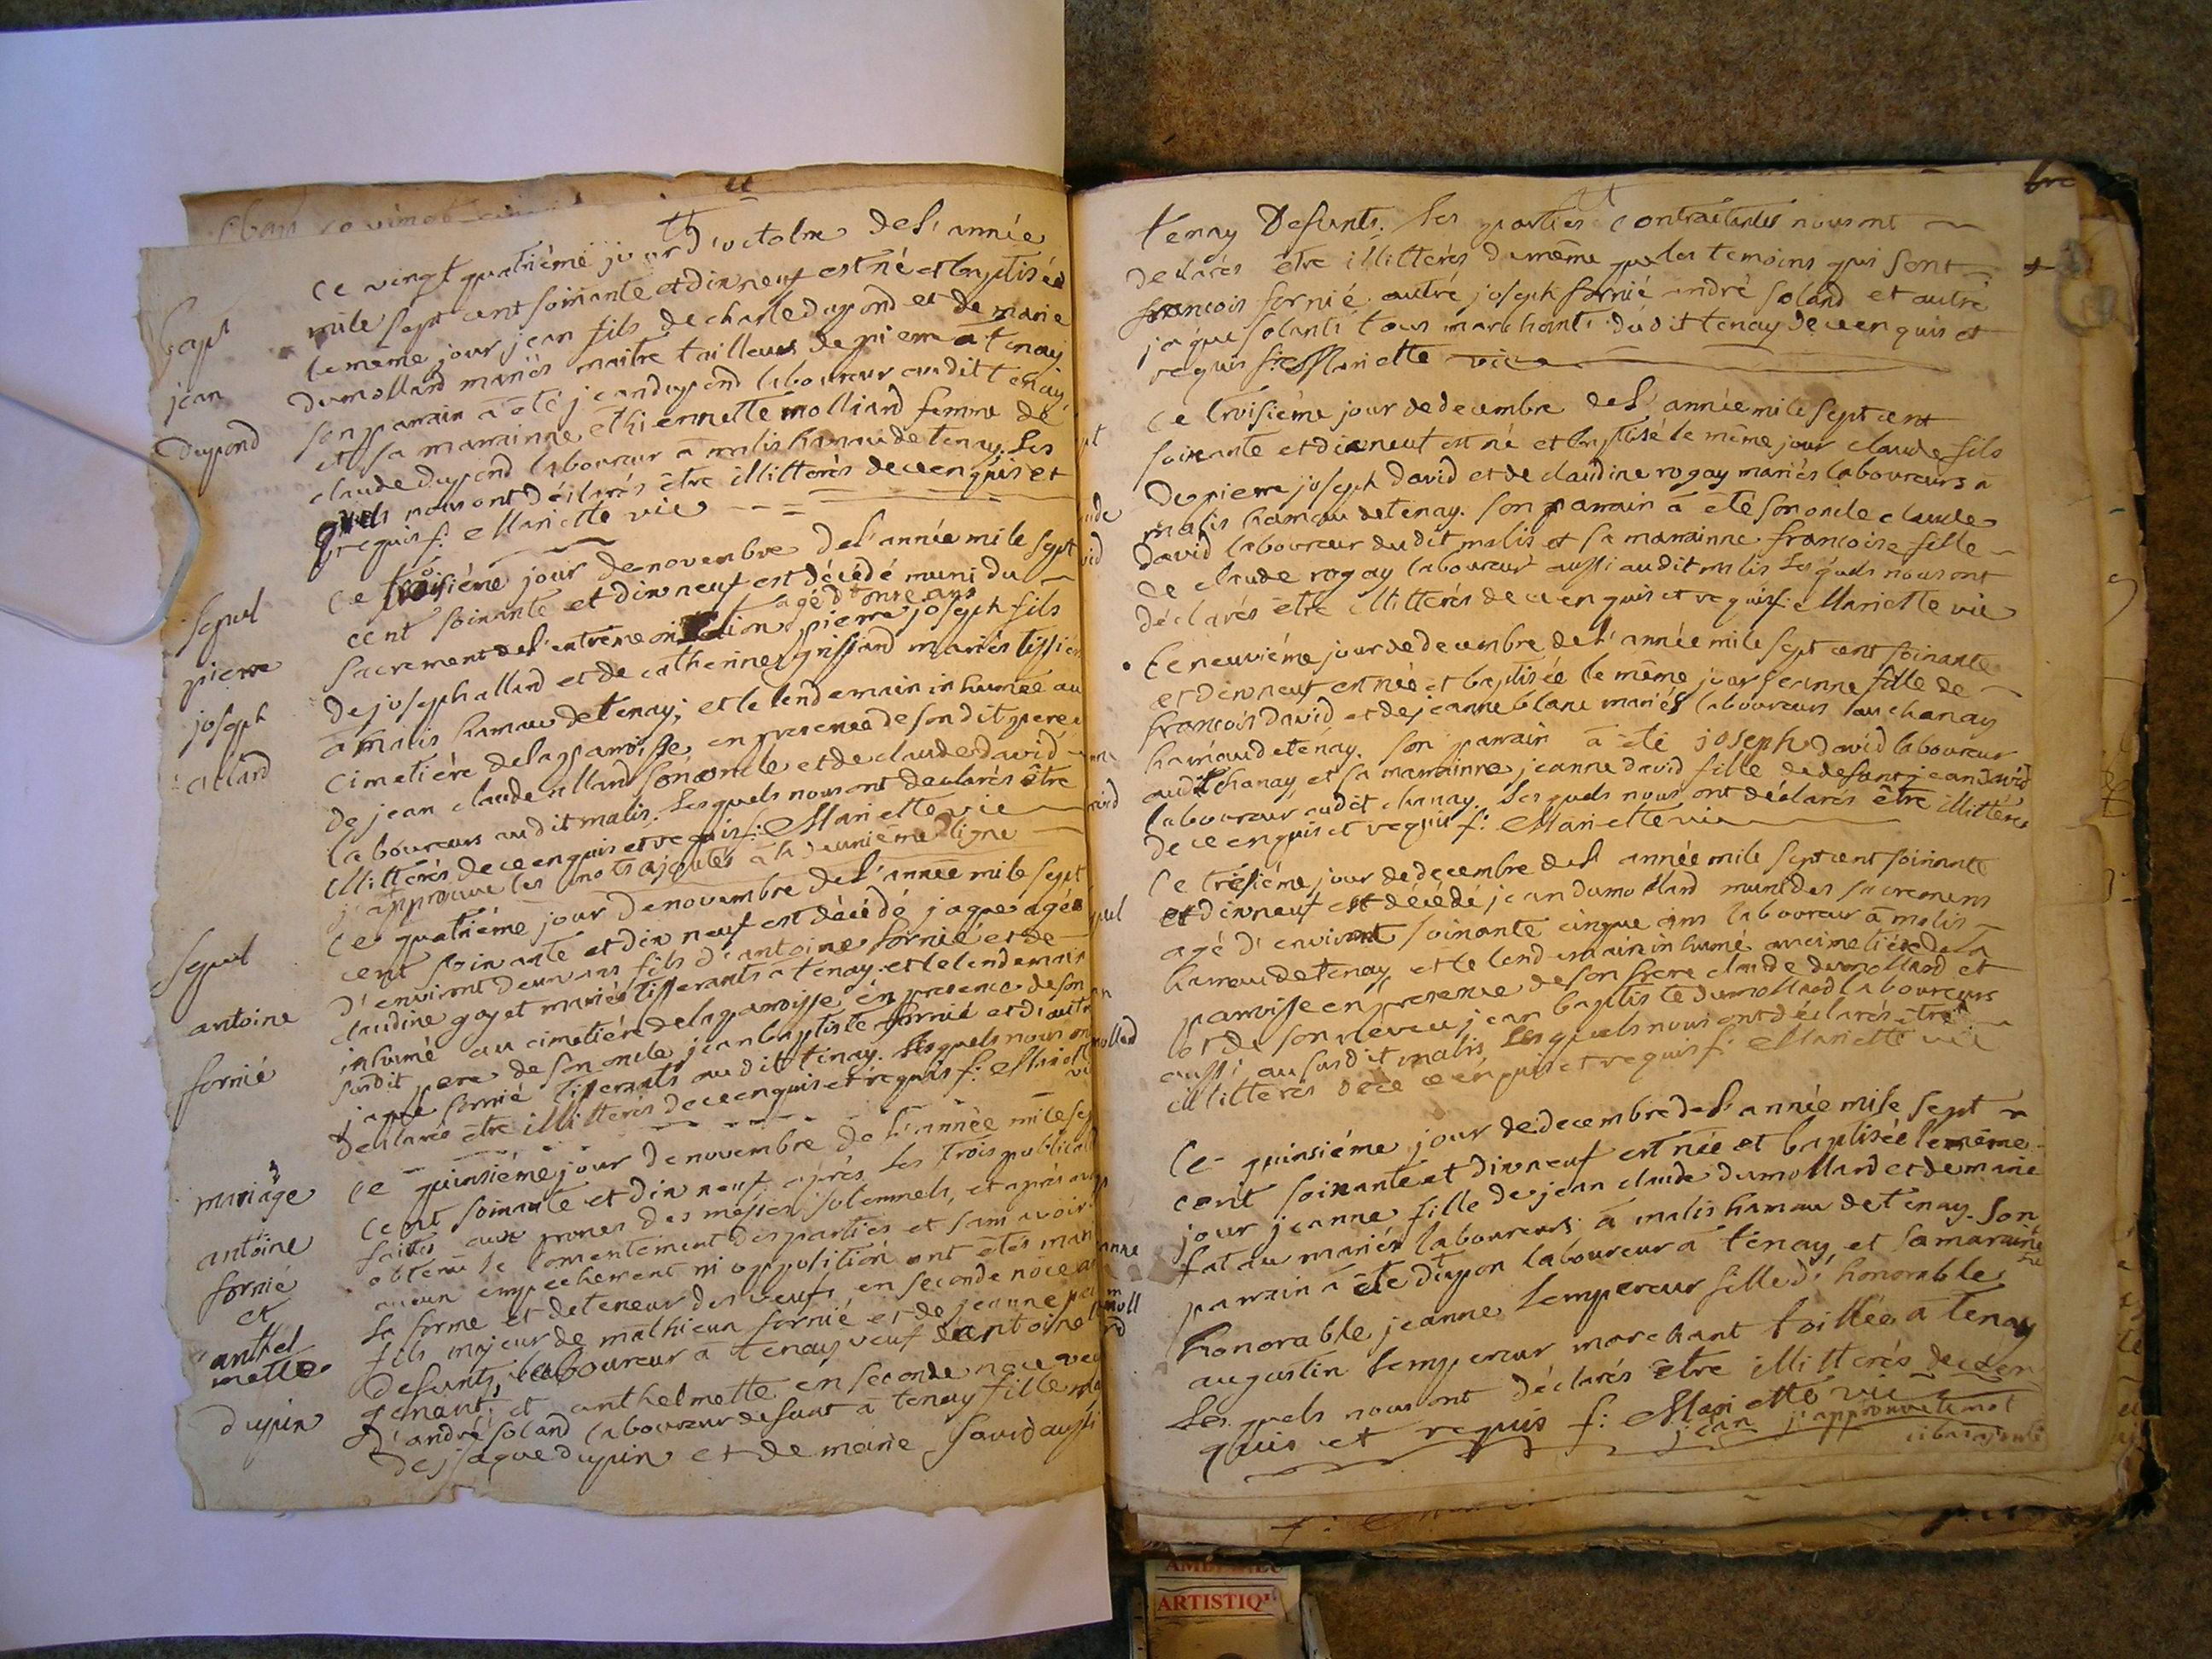 Ce vingt quatriéme jour d'octobre de l'année
mile sept cent soixante et dix neuf est né et baptisée
bapt
le meme jour jean fils de charle dupond et de marie
jean
dumollard mariés maitre tailleurs de pierre à tenay
Dupond
son parrain à été jean dupond laboureur audit tenay,
et sa marainne ethiennette molliard femme de
claude dupond laboureur a malis hamau de tenay. Les
quels nous ont déclarés être illitterés de ce enquis et
requis f: Mariette vic
Sepul
Ce troisiéme jour de novembre de l'année mile sept
cent soixante et dix neuf est décédé muni du
agé d'onze ans
pierre
sacrement de l'extreme onction pierre joseph fils
joseph
de joseph allard et de catherine grissard mariés tissier
allard
a malis hamau de tenay; et le lendemain inhumée au
cimetiére de la parroisse en presence de son dit pere
de jean claude allard son oncle et de claude david
laboureurs au dit malis. Les quels nous ont declarés être
illitterés de ce enquis et requis f: Mariette vic
j'approuve les mots ajoutés à la deuxiéme ligne
Sepul
Ce quatriéme jour de novembre de l'année mile sept
cent soixante et dix neuf est décédé jaque agée
antoine
d'environt deux ans fils d'antoine fornié et de
fornié
claudine goyet mariés tisserants a tenay. et le lendemain
inhumé au cimetiére de la parroisse en presence de son
susdit pere de son oncle jean baptiste fornié et d'autre
jaque fornié tisserants au dit tenay. Lesquels nous ont
declarés être illitterés de ce enquis et requis f: Mariette
vic
mariage
Ce quinsiéme jour de novembre de l'année mile sep
antoine
cent soixante et dix neuf après les trois publicat
fornié
faites aux prones des messes solemnels, et après avoir
et
obtenu le consentement des parties et sans avoir
anthel
aucun empechement ni opposition ont étés mari
mette
la forme et de teneur des veufs, en seconde noce an
dupin
fils majeur de mathieu fornié et de jeanne
defunts, laboureur a tenay veuf de antoine
genant; et anthelmette en seconde noce veu
d'andré soland laboureur defunt a tenay fille
de jaque dupin et de marie savid aussi
tenay Defunts. Les parties contraitantes nous ont
declarés être illitterés de même que les temoins qui sont
francois fornié autre joseph fornié andré soland et autre
jaque solants tous marchants dudit tenay de ce enquis et
requis f: Mariette vic
Ce troisiéme jour de decembre de l'année mile sept cent
soixante et dix neuf est né et baptisé le même jour claude fils
de pierre joseph david et de claudine rogay mariés laboureurs a
malis hamau de tenay. son parrain à été son oncle claude
david laboureur dudit malis et sa marainne francoise fille
de claude rogay laboureur aussi audit malis Les quels nous ont
déclarés être illitterés de ce enquis et requis f: Mariette vic
Le neuviéme jour de decembre de l'année mile sept cent soixante
et dix neuf est née et baptisée le même jour jeanne fille de
francois david et de jeanne blanc mariés laboureurs au chanay
hamau de tenay. son parrain à été joseph david laboureur
audit chanay, et sa marainne jeanne david fille de defunt jean david
laboureur audit chanay. Les quels nous ont déclarés être illittérés
de ce enquis et requis f: Mariette vic
Ce trésiéme jour de decembre de l'année mile sept cent soixante
et dix neuf est décédé jean dumollard muni des sacremens
agé d'environt soixante cinque ans laboureur à malis
hamau de tenay et le lendemain inhumé au cimetiére de la
parroisse en presence de son frere claude dumollard et
et de son néveu jean baptiste dumollard laboureurs
aussi au susdit malis, Les quels nous ont déclarés être
illitterés de ce enquis et requis f: Mariette vic
Ce quinsiéme jour de decembre de l'année mile sept
cent soixante et dix neuf est née et baptisée le même
jour jeanne fille de jean claude dumollard et de marie
mariés laboureurs à malis hamau de tenay. son
parrain à été dupon laboureur a tenay et sa marainne
honorable jeanne Lempereur fille d'honorable
augustin Lempereur marchant toillée a tenay
Les quels nous ont déclarés être illitterés de ce en
quis et requis f: Mariette vic
jean j'approuve le mot
ci bas ajouté
AMB
ARTISTIQ